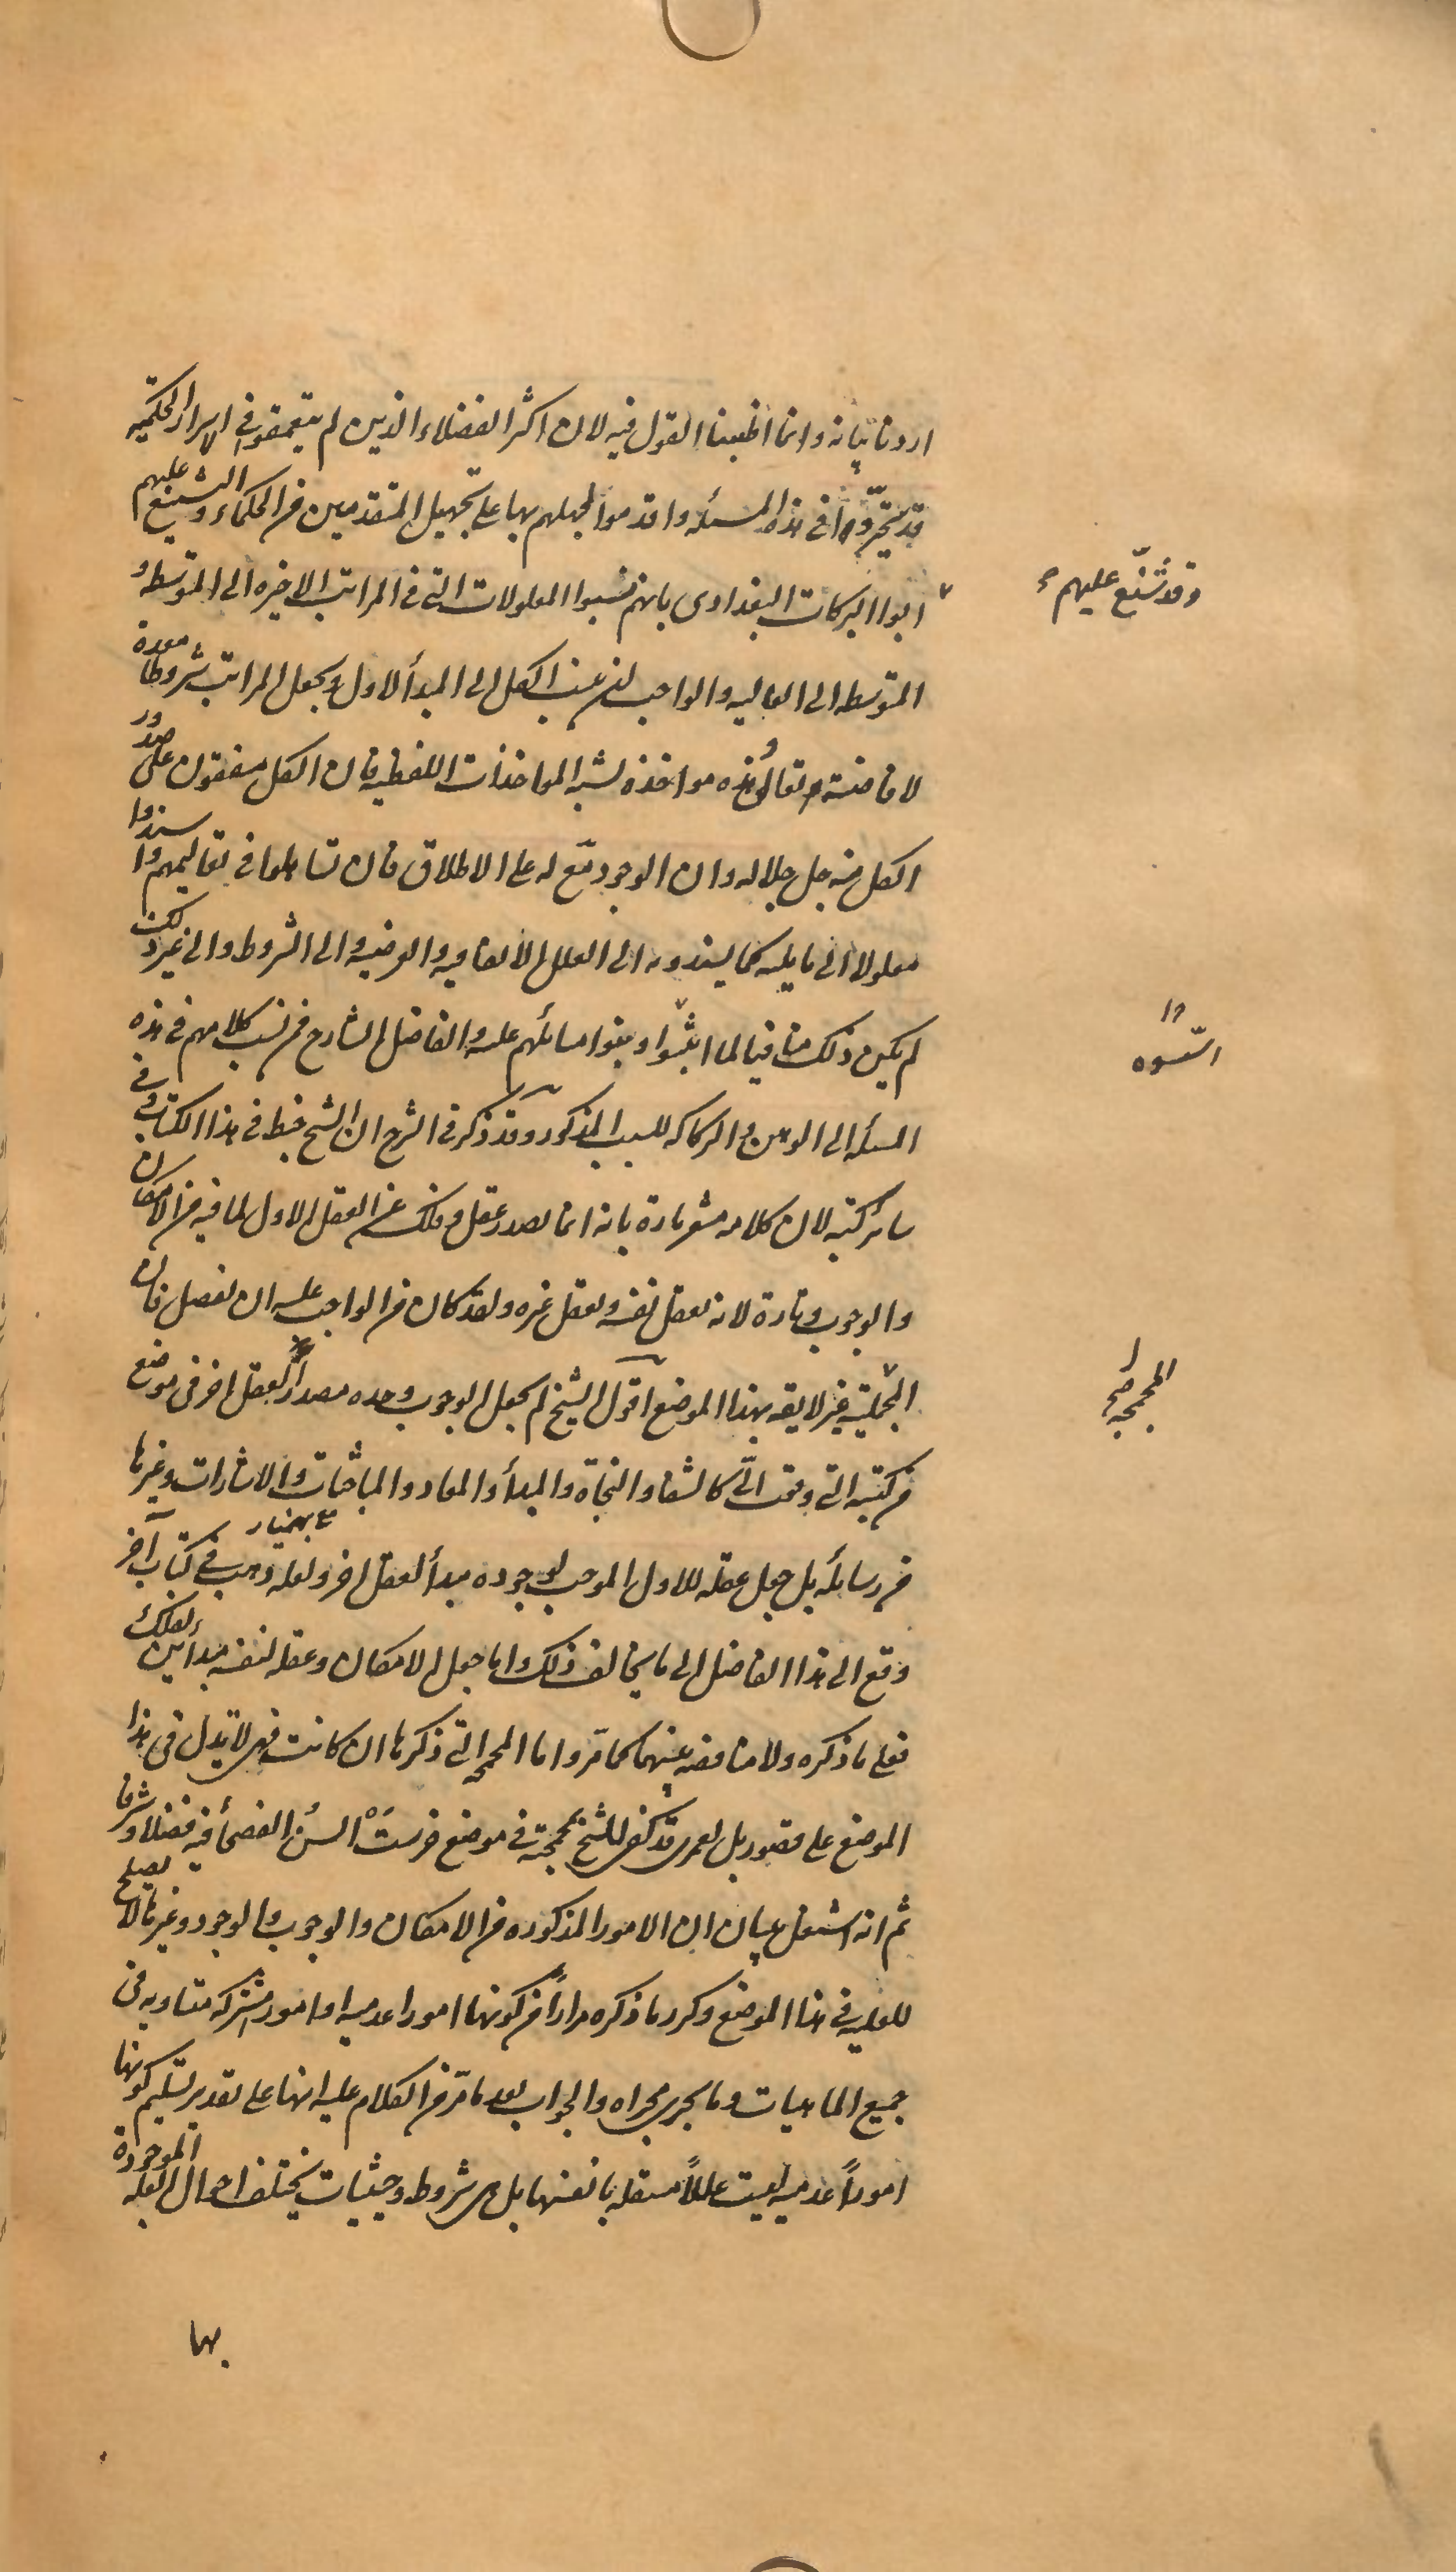 اردنا بيانه وانما اطنبنا القول فيه لان اكثر الفضلاء الذين لم يتعمقوا فى الاسرار الحكميه
قد تحيّروا فى هذه المسئله واقدموا لجهلهم بها على تجهيل المتقدمين من الحكماء والتشنيع عليهم
وقد شنّع عليهم
ابوا البركات البغدادى بانهم نسبوا المعلولات التى فى المراتب الاخيره الى المتوسطه و
المتوسطه الى العاليه والواجب ان ينسب الكل الى المبدأ الاول ويجعل المراتب شروطا معدة
لافاضته تعالى وهذه مواخذه تشبه المواخذات اللفظيه فان الكل متفقون على صدور
الكل منه جل جلاله وان الوجود مع له على الاطلاق فان تساهلوا فى تعاليمهم واسندوا
معلولا الى ما يليه كما يسندونه الى العلل الاتفاقيه والعرضيه والى الشروط والى غير ذلك
لم يكن ذلك منافيا لما اثبتوا وبنوا مسائلهم عليه والفاضل الشارح فمن نسب كلامهم فى هذه
اسّسوه
المسئله الى الوهن والركاكه للسبب المذكور وقد ذكر فى الشرح ان الشيخ خبط فى هذا الكتاب وفى
سائر كتبه لان كلامه مشعر تارة بانه انما يصدر عقل وفلك عن العقل الاول لما فيه من الامكان
والوجوب وتارة لانه يعقل نفسه ويعقل غيره ولقد كان من الواجب عليه ان يفصل فان
المجمجه غير لايقه بهذا الموضع اقول الشيخ لم يجعل الوجوب وحده مصدراً لعقل اخر فى موضع
المجمجه صح
من كتبه التى وقعت الىّ كالشفا والنجاة والمبدأ والمعاد والمباحثات والاشارات وغيرها
من رسائله بل جعل عقله للاول الموجب لوجوده مبدأ لعقل اخر ولعله ذهب فى كتاب آخر
بهمنيار
وقع الى هذا الفاضل الى ما يخالف ذلك واما جعل الامكان وعقله لنفسه مبدأين لفلك
فعلى ما ذكره ولا مناقضه بينهما كما مر واما المجمجه التى ذكرها ان كانت فهى لا تدل فى هذا
الموضع على قصور بل لعمرى قد كفى للشيخ بمجمجة فى موضع خرستْ السنُ الفصحأ فيه فضلا وشرفا
ثم انه اشتغل ببيان ان الامور المذكوره من الامكان والوجوب والوجود وغيرها لا يصلح
للعليه فى هذا الموضع وكرر ما ذكره مراراً من كونها امورا عدميه او امور مشتركه متساويه فى
جميع الماهيات وما يجرى مجراه والجواب بعد ما مرّ من الكلام عليه انها على تقدير تسليم كونها
اموراً عدميه ليست عللاً مستقله بانفسها بل هى شروط وحيثيات يختلف احوال العله الموجودة
بها